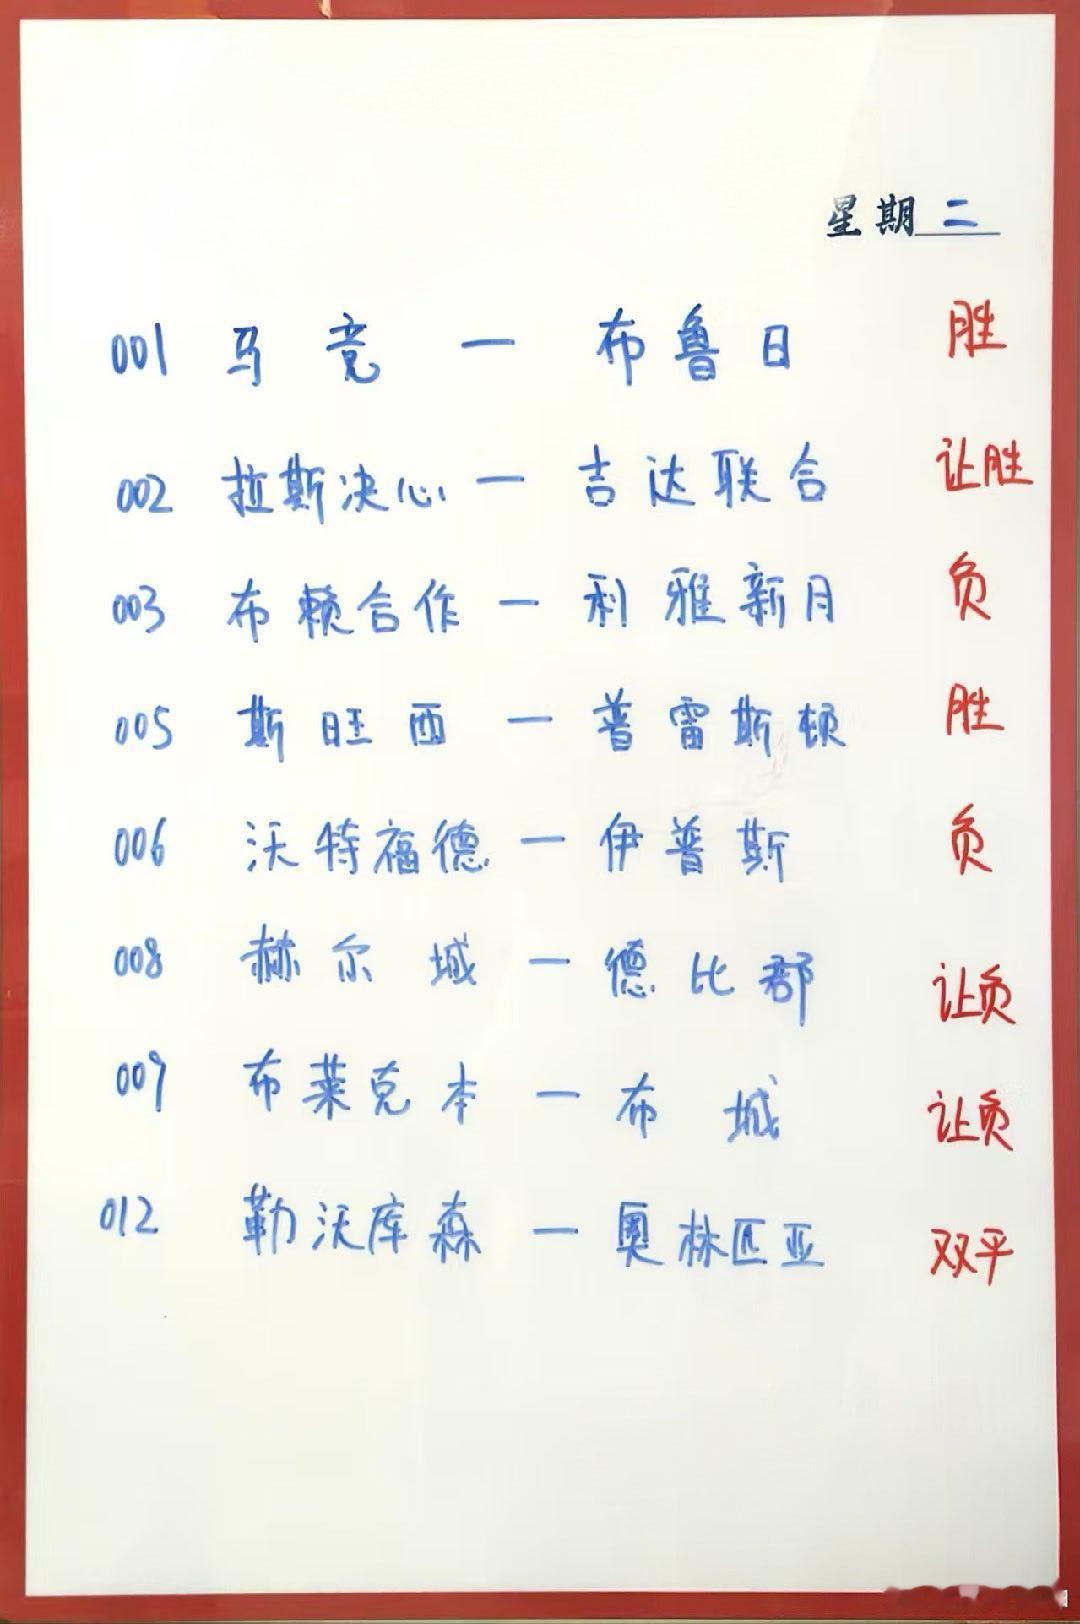 星期 二
001 马竞 — 布鲁日 胜
002 拉斯决心 — 吉达联合 让胜
003 布赖合作 — 利雅新月 负
005 斯旺西 — 普雷斯顿 胜
006 沃特福德 — 伊普斯 负
008 赫尔城 — 德比郡 让负
009 布莱克本 — 布城 让负
012 勒沃库森 — 奥林匹亚 双平